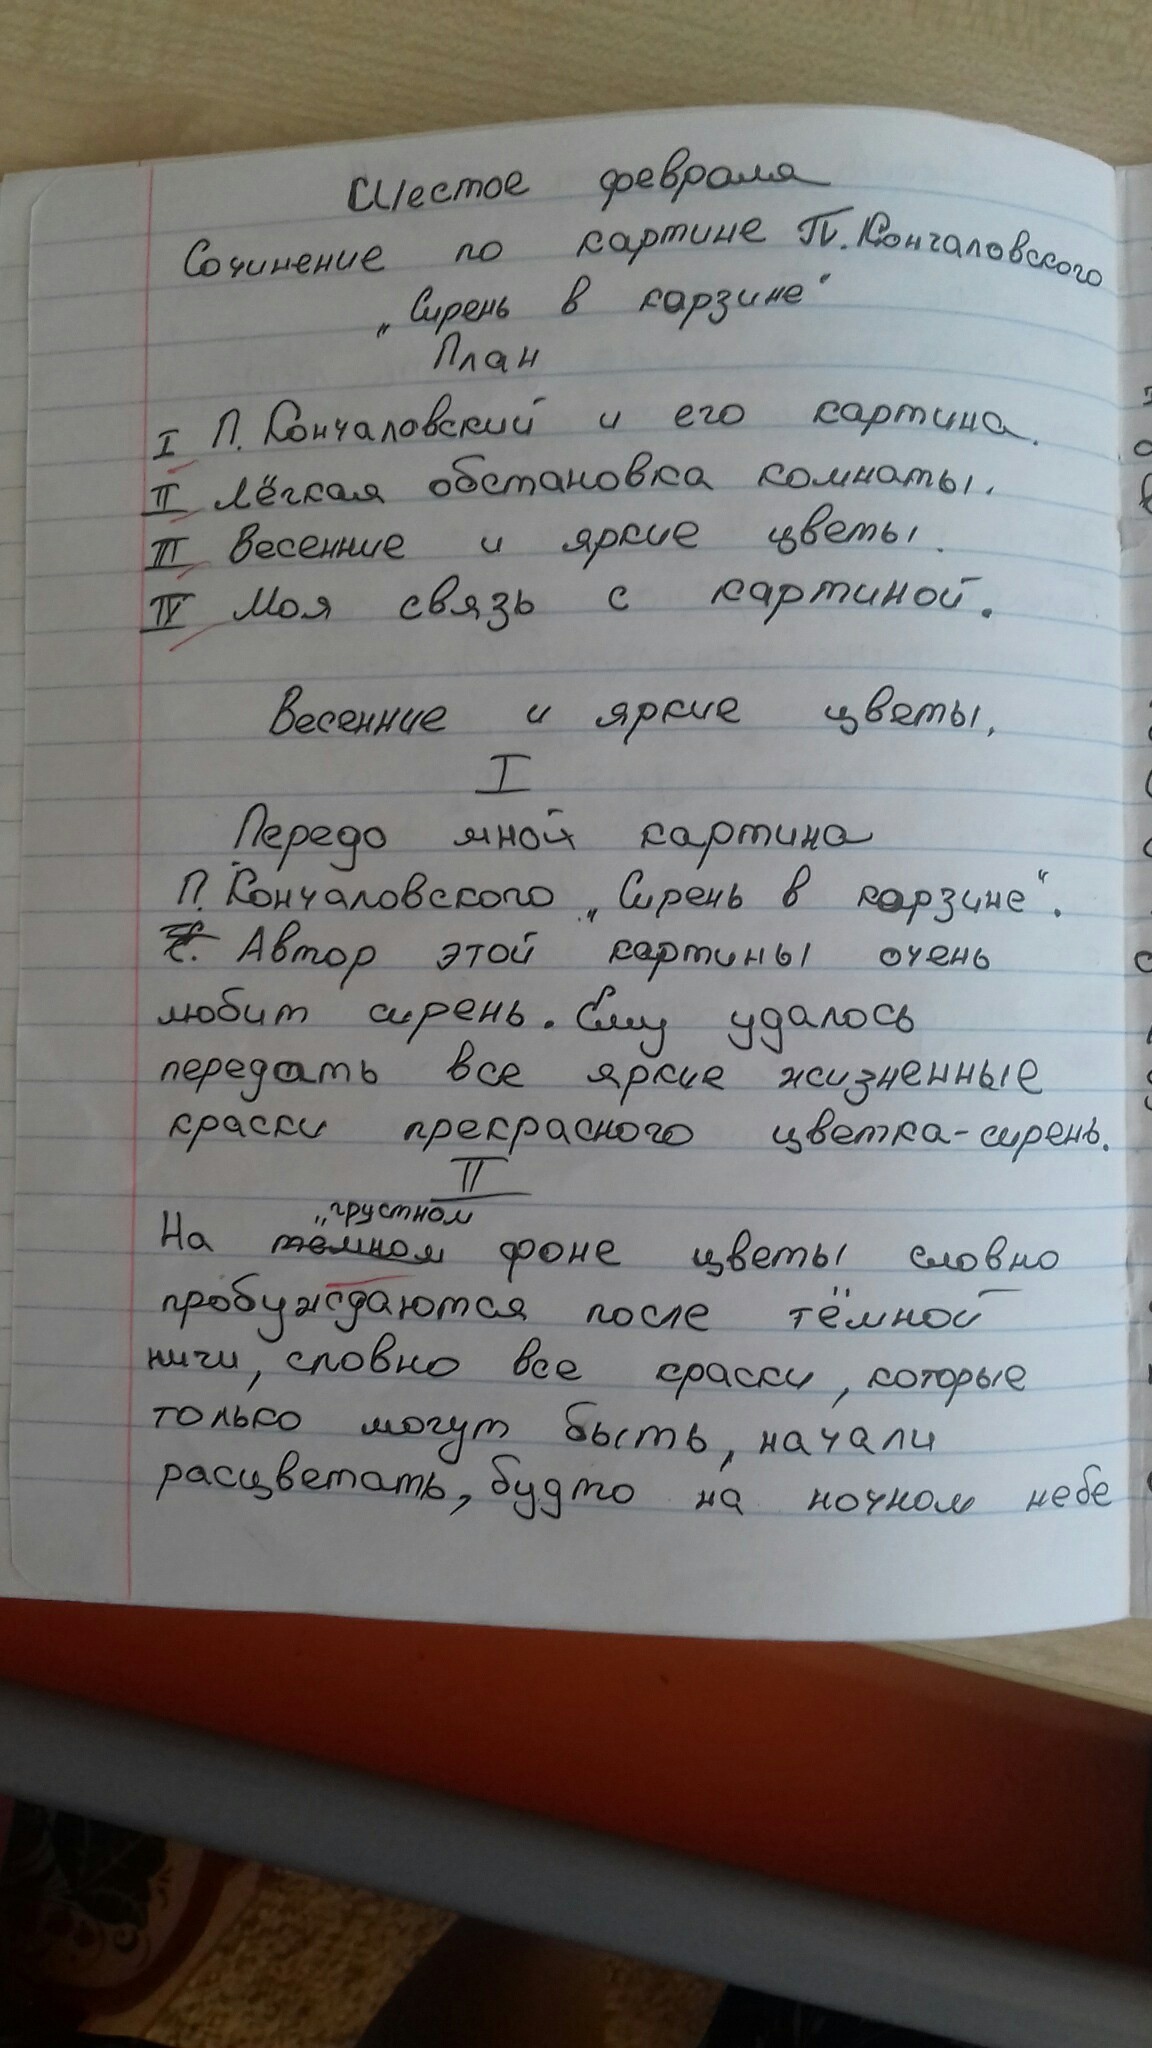 Шестое февраля
Сочинение по картине П. Кончаловского
„Сирень в карзине"
План
I П. Кончаловский и его картина.
II Лёгкая обстановка комнаты.
III Весенние и яркие цветы.
IV Моя связь с картиной.
Весенние и яркие цветы.
I
Передо мной картина
П. Кончаловского „Сирень в корзине".
Автор этой картины очень
любит сирень. Ему удалось
передать все яркие жизненные
краски прекрасного цветка-сирень.
II
„грустном
На тёмном фоне цветы словно
пробуждаются после тёмной
ничи, словно все краски, которые
только могут быть, начали
расцветать, будто на ночном небе